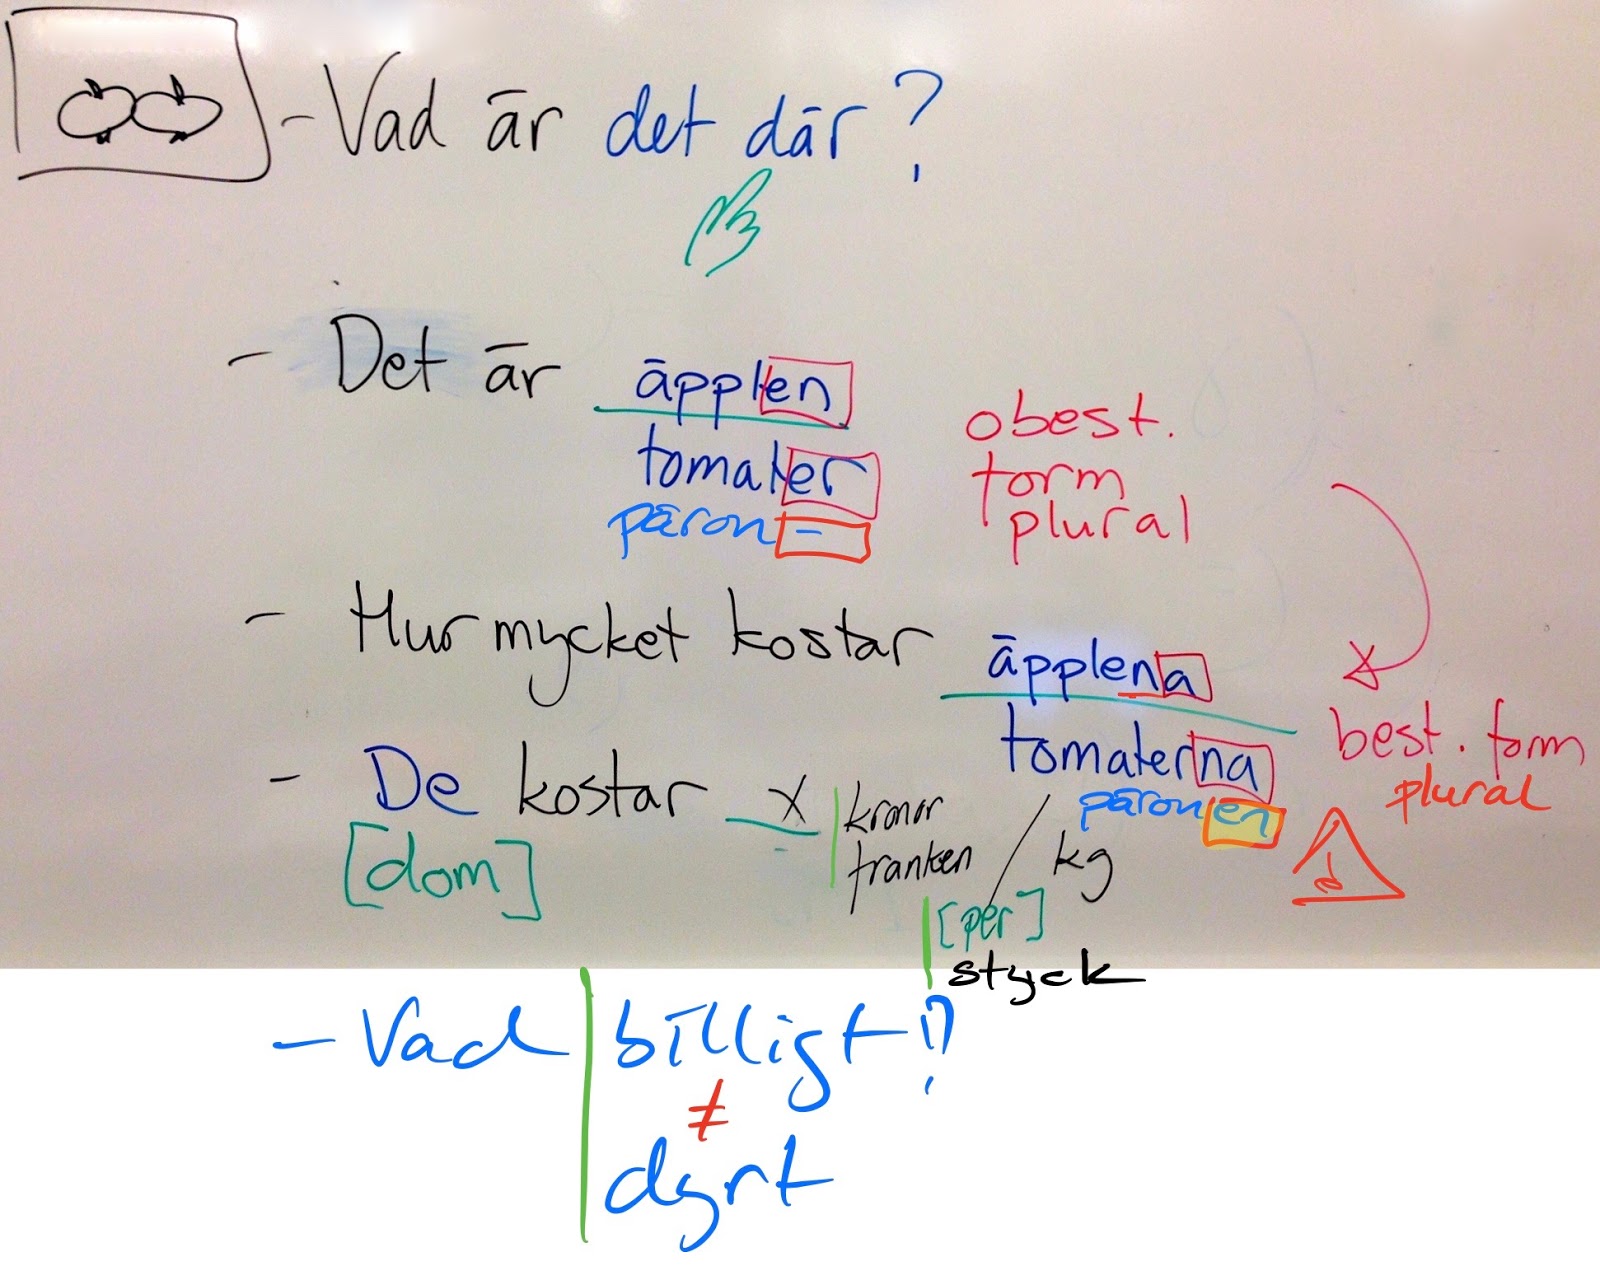 - Vad är det där?
- Det är äpplen
tomater
päron -
obest.
form
plural
- Hur mycket kostar äpplena
tomaterna
päronen
best. form
plural
- De kostar x kronor
franken
/ kg
[dom]
[per]
styck
- Vad billigt!?
≠
dyrt